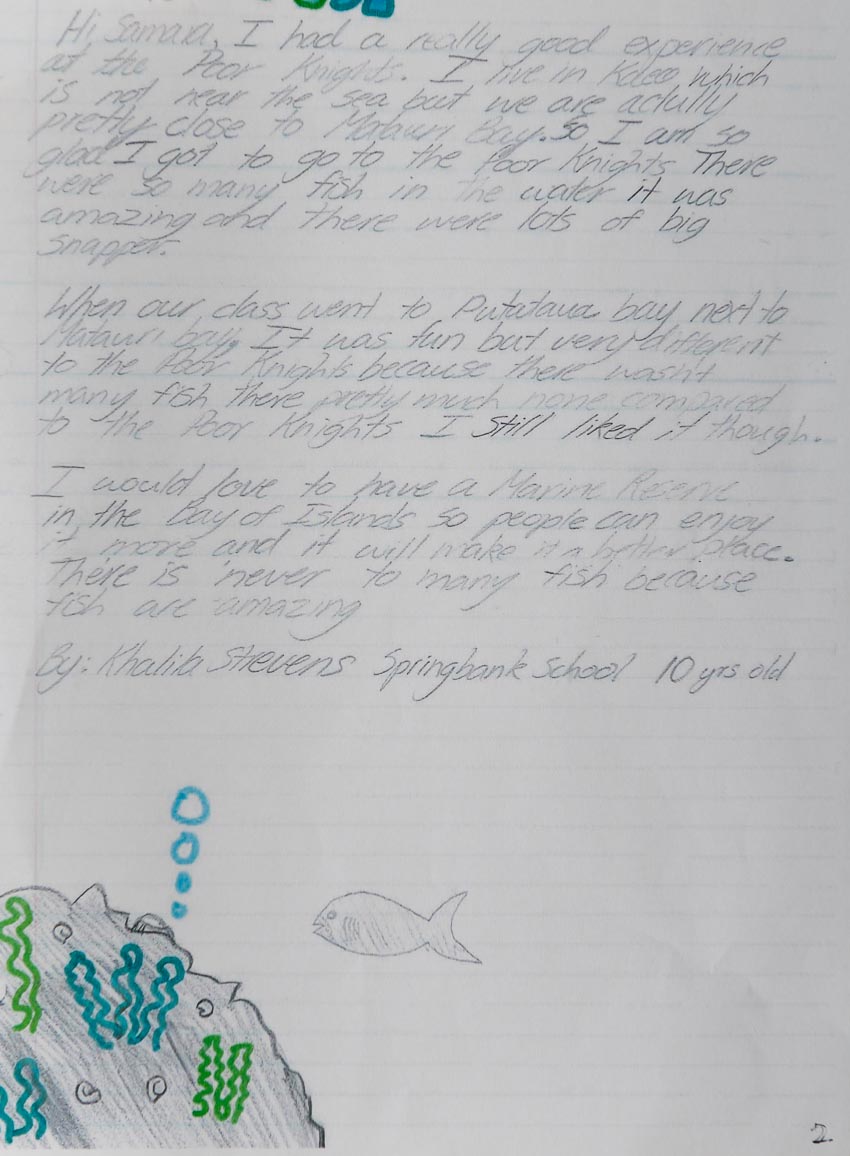 Hi Samara, I had a really good experience
at the Poor Knights. I live in Kaeo which
is not near the sea but we are actully
pretty close to Matauri Bay. So I am so
glad I got to go to the Poor Knights There
were so many fish in the water it was
amazing and there were lots of big
snapper.
When our class went to Putataua bay next to
Matauri bay. It was fun but very different
to the Poor Knights because there wasn't
many fish there pretty much none compared
to the Poor Knights I still liked it though.
I would love to have a Marine Reserve
in the Bay of Islands so people can enjoy
it more and it will make it a better place.
There is never to many fish because
fish are amazing
By: Khalila Strevens Springbank School 10 yrs old
2